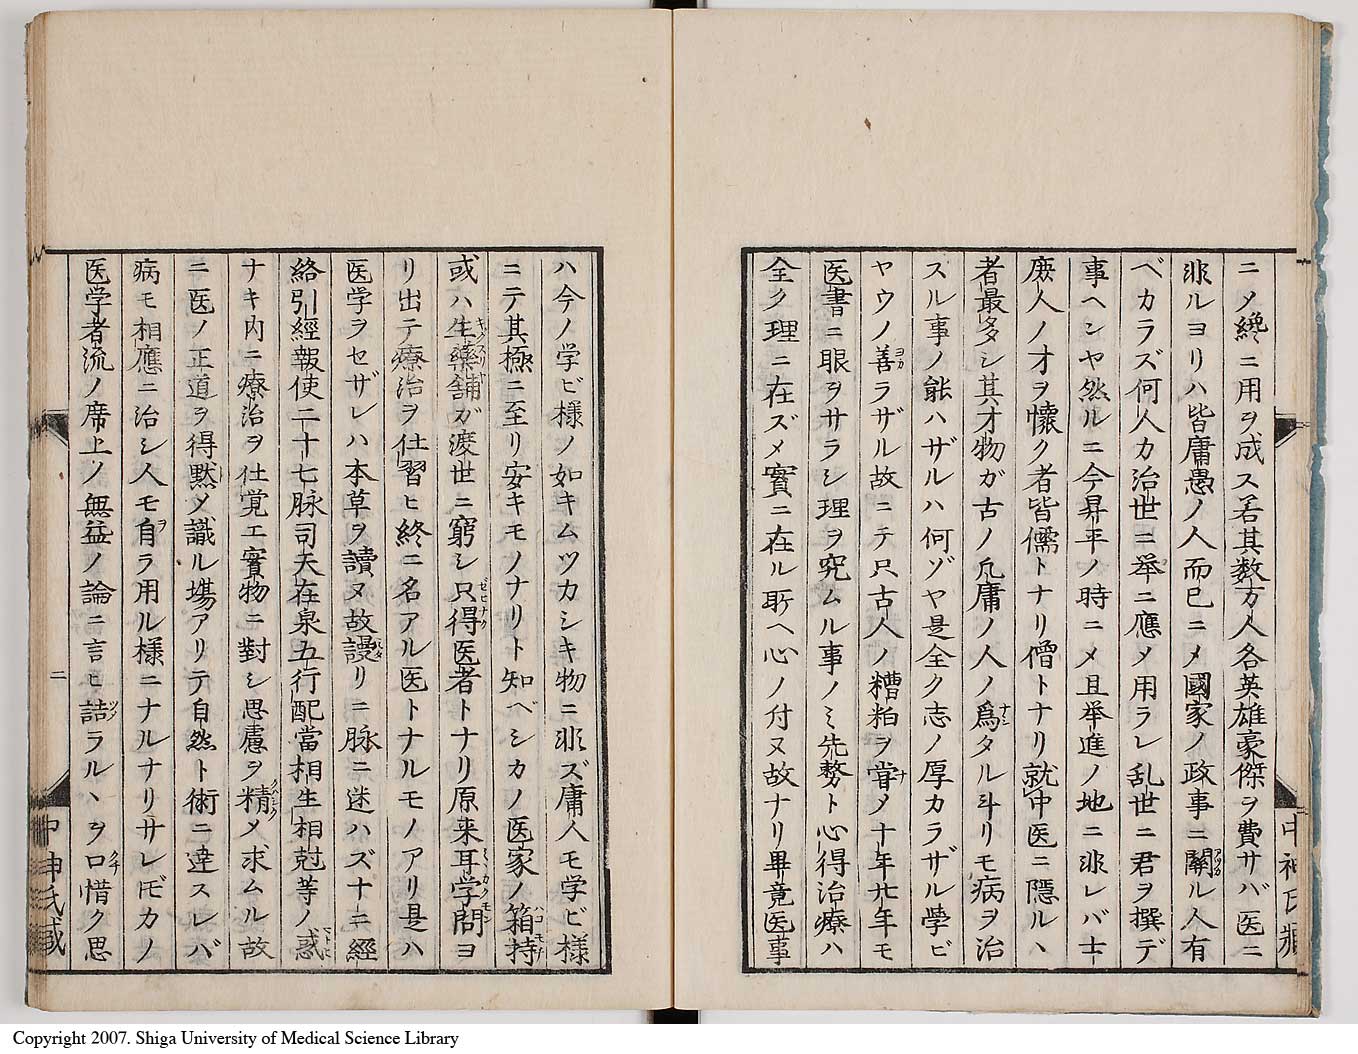 ニメ纔ニ用ヲ成ス若其数万人各英雄豪傑ヲ費サバ医ニ
非ルヨリハ皆庸愚ノ人而已ニメ國家ノ政事ニ關ル人有
ベカラズ何人カ治世ニ挙ニ應メ用ラレ乱世ニ君ヲ撰デ
事ヘンヤ然ルニ今昇平ノ時ニメ且挙進ノ地ニ非レバ士
庶人ノオヲ懐ク者皆儒トナリ僧トナリ就中医ニ隠ルヽ
者最多シ其才物ガ古ノ凡庸ノ人ノ爲タル斗リモ病ヲ治
スル事ノ能ハザルハ何ゾヤ是全ク志ノ厚カラザル學ビ
ヤウノ善ラザル故ニテ只古人ノ糟粕ヲ甞メ十年廿年モ
医書ニ眼ヲサラシ理ヲ究ムル事ノミ先務ト心得治療ハ
全ク理ニ在ズメ實ニ在ル所ヘ心ノ付ヌ故ナリ畢竟医事
中神氏藏
ハ今ノ学ビ様ノ如キムツカシキ物ニ非ズ庸人モ学ビ様
ニテ其極ニ至リ安キモノナリト知ベシカノ医家ノ箱持
或ハ生藥舗ガ渡世ニ窮シ只得医者トナリ原来耳学問ヨ
リ出テ療治ヲ仕習ヒ終ニ名アル医トナルモノアリ是ハ
医学ヲセザレハ本草ヲ讀ヌ故謾リニ脉ニ迷ハズ十二經
絡引經報使二十七脉司天在泉五行配當相生相尅等ノ惑
ナキ内ニ療治ヲ仕覚エ實物ニ對シ思慮ヲ精メ求ムル故
ニ医ノ正道ヲ得黙メ識ル塲アリテ自然ト術ニ達スレバ
病モ相應ニ治シ人モ自ラ用ル様ニナルナリサレ𪜈カノ
医学者流ノ席上ノ無益ノ論ニ言ヒ詰ラルヽヲ口惜ク思
二
中神氏藏
Copyright 2007. Shiga University of Medical Science Library